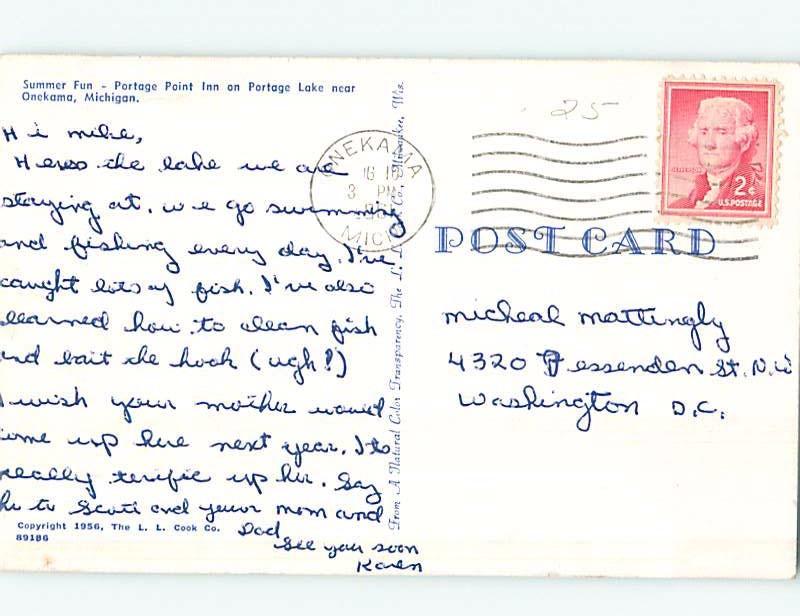 Summer Fun - Portage Point Inn on Portage Lake near
Onekama, Michigan.
Hi mike,
Heres the lake we are
staying at. we go swimming
and fishing every day. I've
caught lots of fish. I've also
learned how to clean fish
and bait the hook (ugh!)
I wish your mother would
come up here next year. Its
really terific up her. Say
hi to Scott and your mom and
Dad
See you soon
Karen
Copyright 1956, The L. L. Cook Co.
89186
From A Natural Color Transparency, The L. L. Cook Co., Milwaukee, Wis.
ONEKAMA
3 PM
MICH
25
JEFFERSON
2¢
U.S. POSTAGE
POST CARD
micheal mattingly
4320 Fessenden St. N.W
Washington D.C.